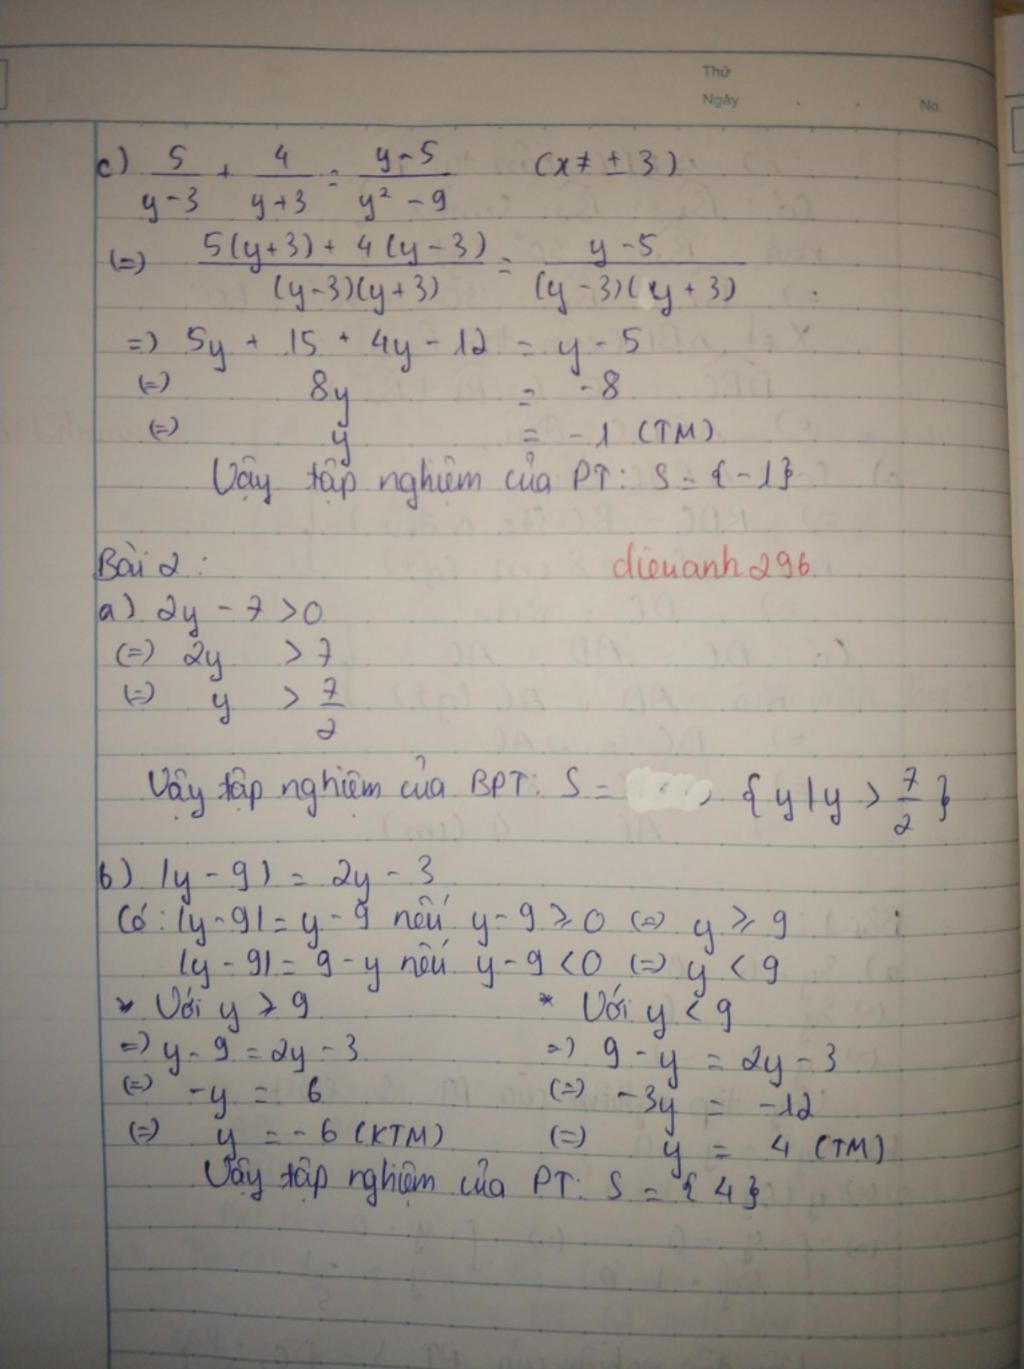 Thứ
Ngày . . No.
c) 5/(y-3) + 4/(y+3) = (y-5)/(y² - 9) (x ≠ ± 3)
(=) (5(y+3) + 4(y-3))/((y-3)(y+3)) = (y-5)/((y-3)(y+3))
=) 5y + 15 + 4y - 12 = y - 5
(=) 8y = -8
(=) y = -1 (TM)
Vậy tập nghiệm của PT: S = {-1}
Bài 2: dieuanh296
a) 2y - 7 > 0
(=) 2y > 7
(=) y > 7/2
Vậy tập nghiệm của BPT: S = {y | y > 7/2}
b) |y - 9| = 2y - 3
Có: |y-9| = y - 9 nếu y - 9 ≥ 0 (=) y ≥ 9
|y - 9| = 9 - y nếu y - 9 < 0 (=) y < 9
* Với y ≥ 9 * Với y < 9
=) y - 9 = 2y - 3 =) 9 - y = 2y - 3
(=) -y = 6 (=) -3y = -12
(=) y = -6 (KTM) (=) y = 4 (TM)
Vậy tập nghiệm của PT: S = {4}